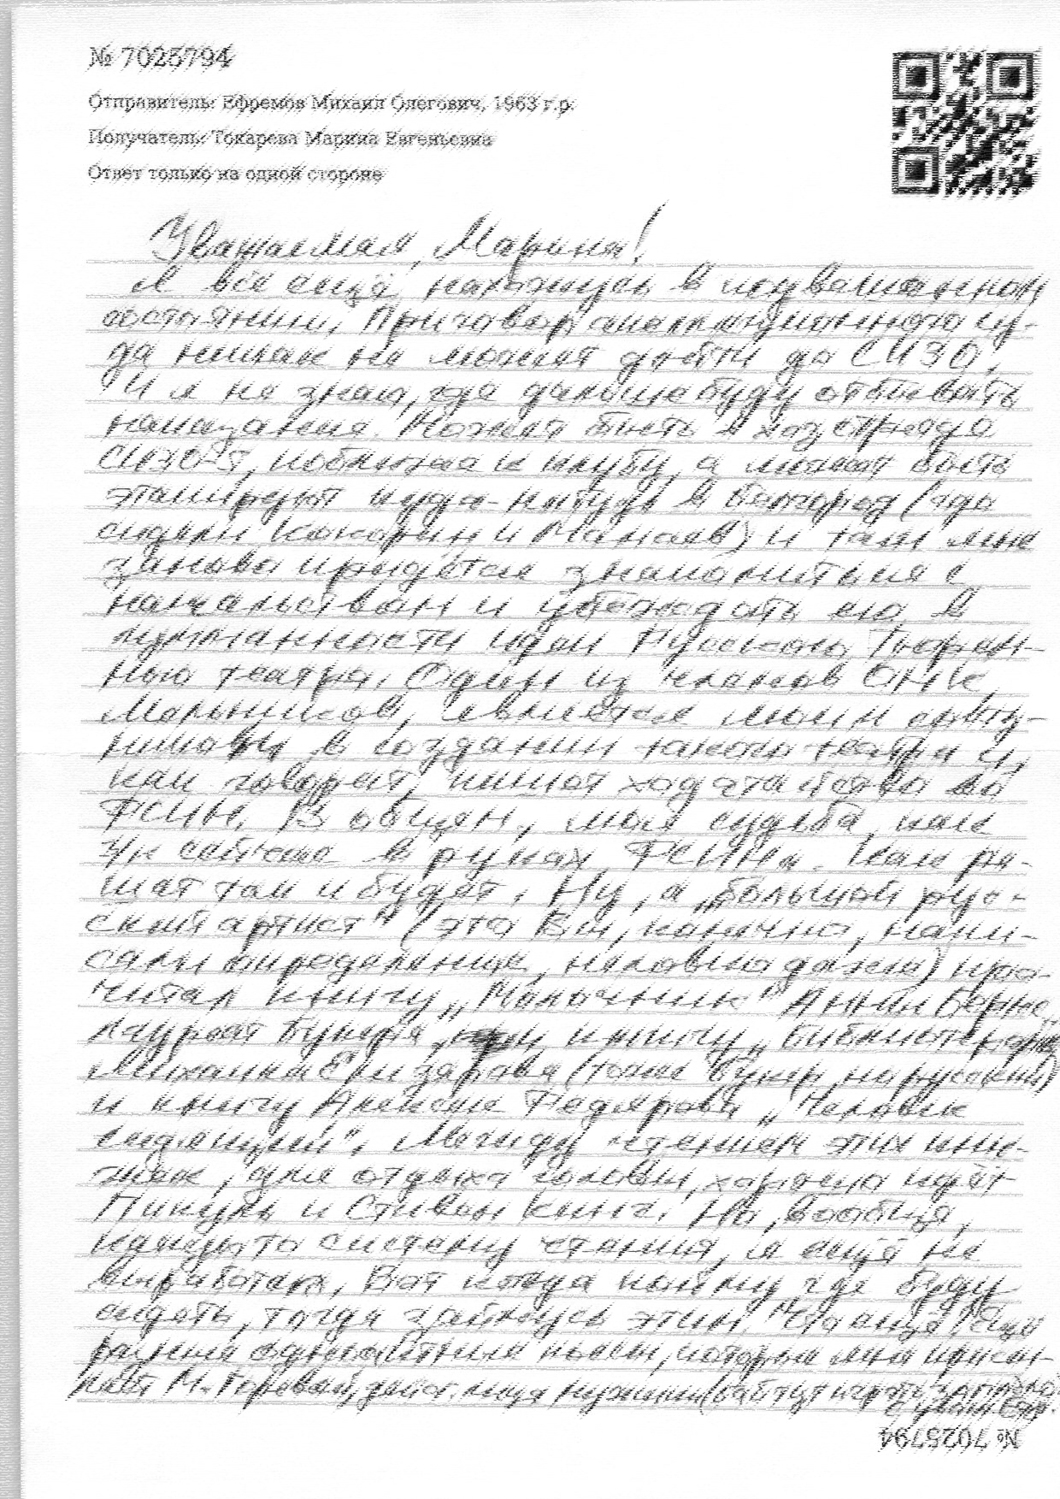 № 7025794
Отправитель: Ефремов Михаил Олегович, 1963 г.р.
Получатель: Токарева Марина Евгеньевна
Ответ только на одной стороне
Уважаемая, Марина!
Я всё ещё нахожусь в подвешенном
состоянии, приговор апелляционного су-
да никак не может дойти до СИЗО,
и я не знаю, где дальше буду отбывать
наказание. Может быть в хозотряде
СИЗО-5, поближе к клубу, а может быть
этапируют куда-нибудь в Белгород (где
сидели Кокорин и Мамаев) и там мне
заново придётся знакомиться с
начальством и убеждать его в
нужности идеи Русского Тюрем-
ного театра. Один из членов ОНК,
Мельников, является моим
в создании такого театра и,
как говорит, пишет ходатайства во
ФСИН. В общем, моя судьба, как
з/к сейчас в руках ФСИНа. Как ре-
шат так и будет. Ну, а „большой рус-
ский артист" (это Вы, конечно, напи-
сали определение, неловко даже) про-
читал книгу „Молочник" Анны Бернс,
лауреат Букера, и книгу „Библиотекарь"
Михаила Елизарова (тоже Букер, но русский)
и книгу Алексея Федярова „Человек
сидящий". Между чтением этих кни-
жек, для отдыха головы, хорошо идёт
Пикуль и Стивен Кинг. Но, вообще,
какую-то систему чтения, я ещё не
выработал. Вот когда пойму, где буду
сидеть, тогда займусь этим. Что ещё? Ещё
разные одноактные пьесы, которые мне присы-
лает М. Горевой,
№ 7025794